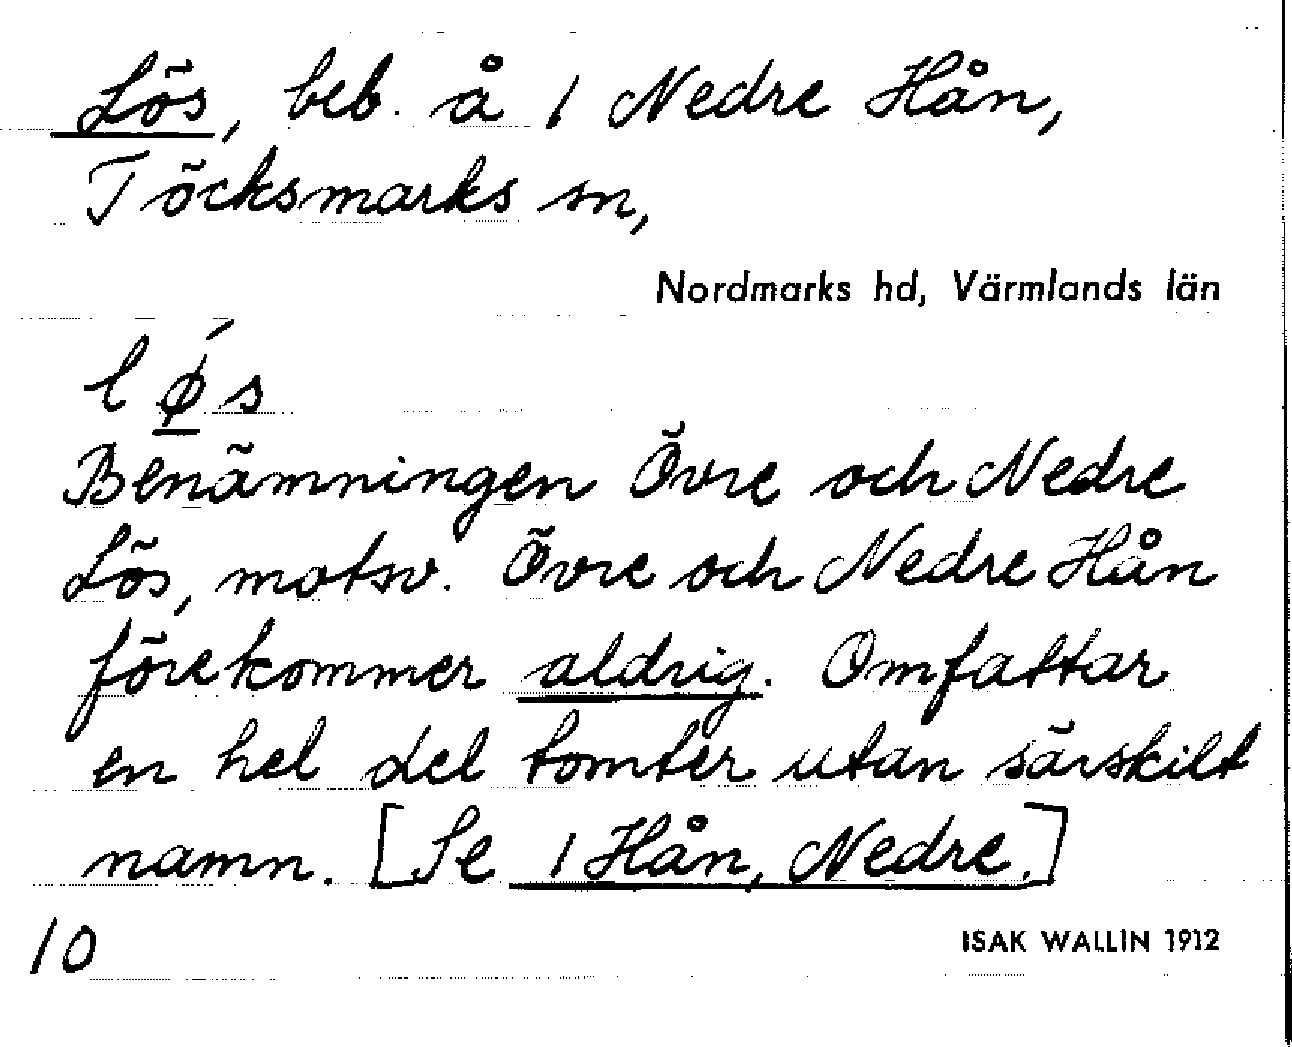 Lös, beb. å 1 Nedre Hån,
Töcksmarks sn,
Nordmarks hd, Värmlands län
lǿ̱s
Benämningen Övre och Nedre
Lös, motsv. Övre och Nedre Hån
förekommer aldrig. Omfattar
en hel del tomter utan särskilt
namn. [Se 1 Hån, Nedre.]
10
ISAK WALLIN 1912